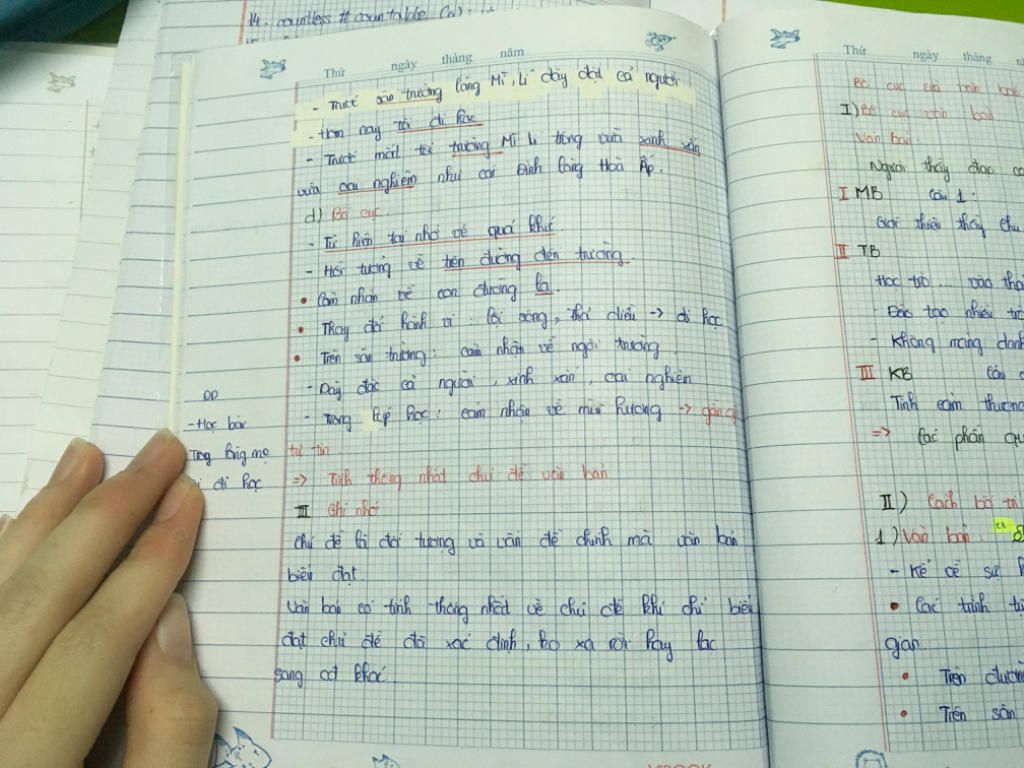 14. countless # countable (a):
Thứ ngày tháng năm
- Trước sân trường làng Mĩ Lí dày đặt cả người
- Hôm nay tôi đi học
- Trước mắt tôi trường Mĩ Lí trông vừa xinh xắn
vừa oai nghiêm như cái Đình làng Hoà Ấp.
d) Bố cục.
- Từ hiện tại nhớ về quá khứ
- Hồi tưởng về trên đường đến trường.
• Cảm nhận về con đường lạ.
• Thay đổi hành vi: lội sông, thả diều -> đi học
• Trên sân trường: cảm nhận về ngôi trường
- Dày đặc cả người, xinh xắn, oai nghiêm
- Trong lớp học: cảm nhận về mùi hương -> gần gũi
tự tin
=> Tính thống nhất chủ đề văn bản
III Ghi nhớ
Chủ đề là đối tượng và vấn đề chính mà văn bản
biểu đạt.
Văn bản có tính thống nhất về chủ đề khi chỉ biểu
đạt chủ đề đã xác định, ko xa rời hay lạc
sang cđ khác.
DD
- Học bài
Tong lòng mẹ
đi học
Thứ ngày tháng
Bố cục của văn bản
I) Bố cục văn bản
Văn bản:
Người thầy đạo
I MB Câu 1:
Giới thiệu thầy Chu
II TB
Học trò ... vào
- Đào tạo nhiều
- Không màng danh
III KB
Tình cảm thương
=> Các phần
II) Cách bố trí
1) Văn bản: "
- Kể về
• Các trình tự
gian
• Trên đường
• Trên sân